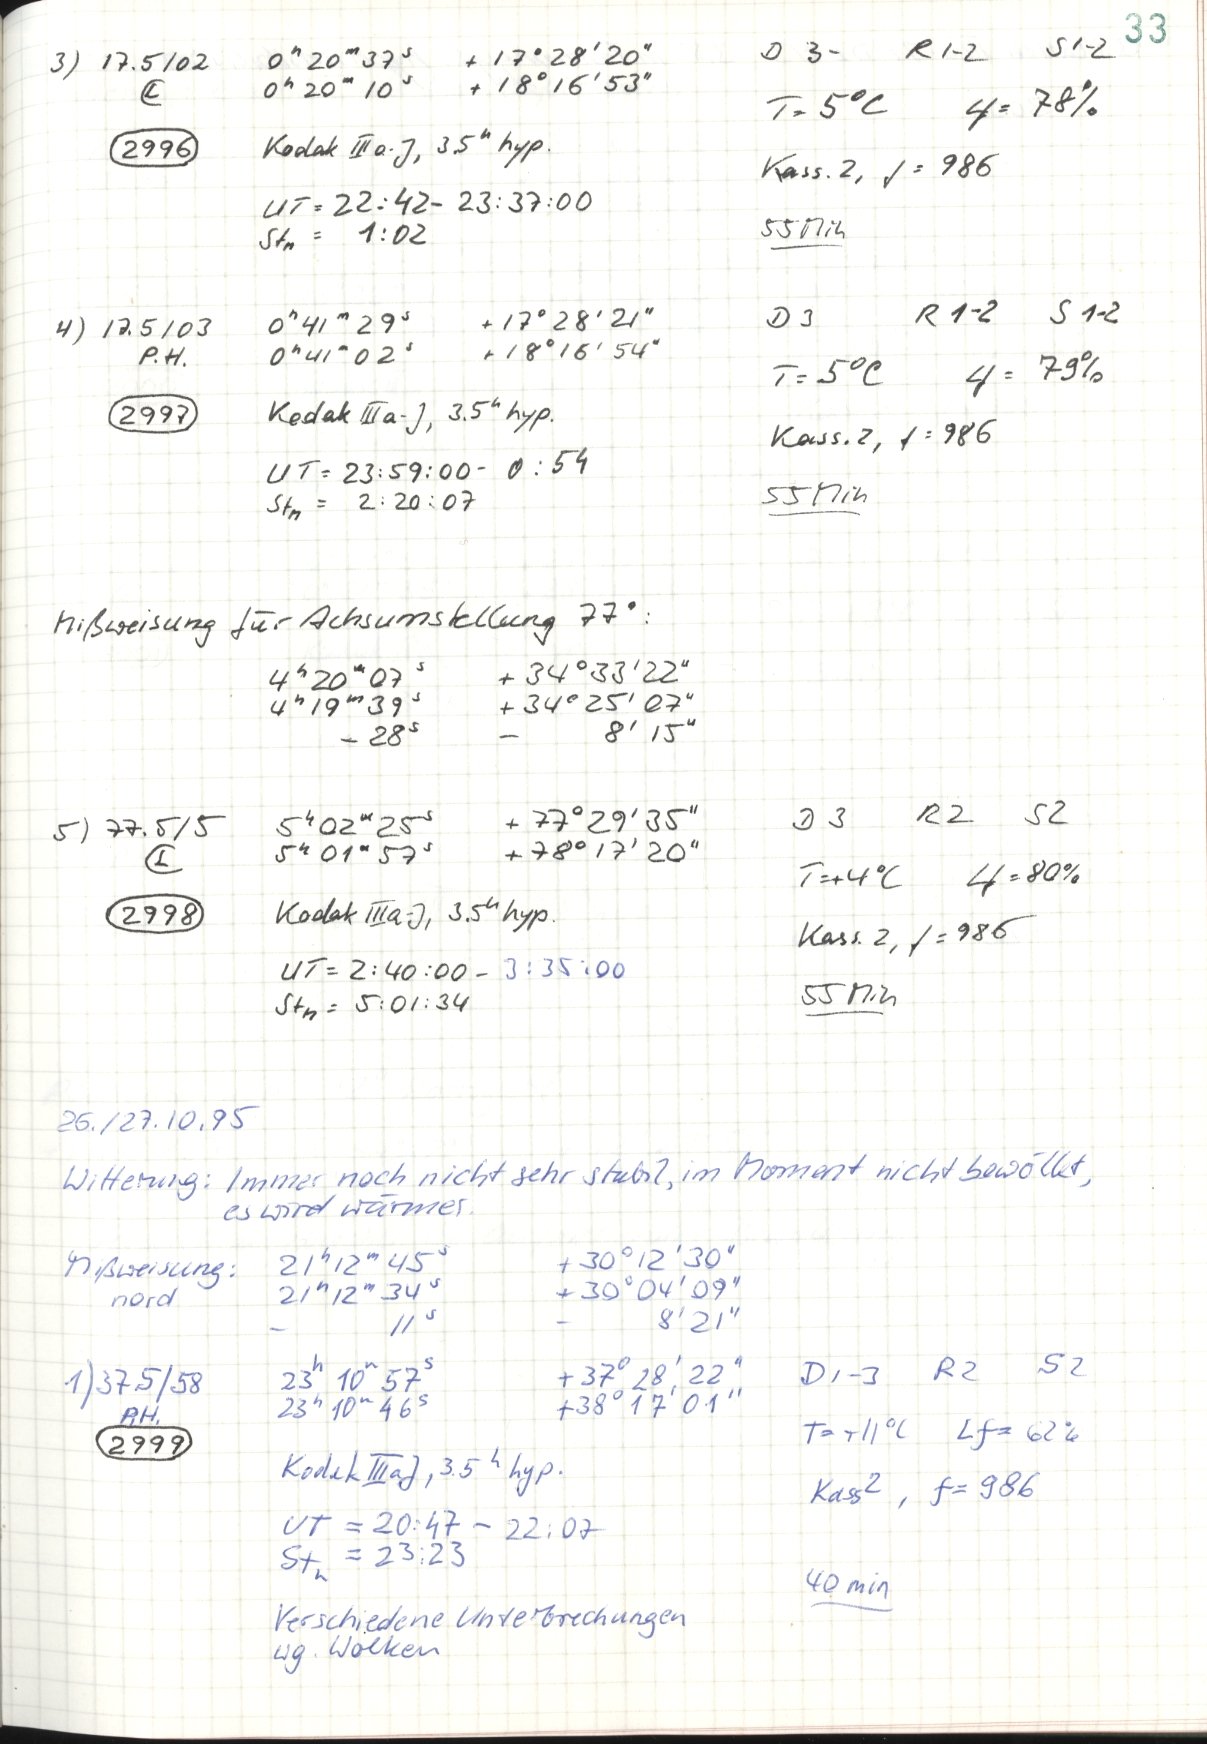 33
3) 17.5/02 0ʰ20ᵐ37ˢ +17°28'20" D 3- R 1-2 S 1-2
0ʰ20ᵐ10ˢ +18°16'53"
T= 5°C Lf= 78%
2996 Kodak IIIa-J, 3.5ʰ hyp.
Kass. 2, f= 986
UT= 22:42- 23:37:00
Stₙ = 1:02 55 Min
4) 17.5/03 0ʰ41ᵐ29ˢ +17°28'21" D 3 R 1-2 S 1-2
P.H. 0ʰ41ᵐ02ˢ +18°16'54"
T= 5°C Lf= 79%
2997 Kodak IIIa-J, 3.5ʰ hyp.
Kass. 2, f= 986
UT= 23:59:00- 0:54
Stₙ = 2:20:07 55 Min
Mißweisung für Achsumstellung 77°:
4ʰ20ᵐ07ˢ +34°33'22"
4ʰ19ᵐ39ˢ +34°25'07"
- 28ˢ - 8'15"
5) 77.5/5 5ʰ02ᵐ25ˢ +77°29'35" D 3 R 2 S 2
5ʰ01ᵐ57ˢ +78°17'20"
T=+4°C Lf=80%
2998 Kodak IIIa-J, 3.5ʰ hyp.
Kass. 2, f= 986
UT= 2:40:00- 3:35:00
Stₙ = 5:01:34 55 Min
26./27.10.95
Witterung: Immer noch nicht sehr stabil, im Moment nicht bewölkt,
es wird wärmer.
Mißweisung: 21ʰ12ᵐ45ˢ +30°12'30"
nord 21ʰ12ᵐ34ˢ +30°04'09"
- 11ˢ - 8'21"
1) 37.5/58 23ʰ10ᵐ57ˢ +37°28'22" D 1-3 R 2 S 2
P.H. 23ʰ10ᵐ46ˢ +38°17'01"
T= +11°C Lf= 62%
2999
Kodak IIIaJ, 3.5ʰ hyp.
Kass 2, f= 986
UT = 20:47 - 22:07
Stₙ = 23:23
40 min
Verschiedene Unterbrechungen
wg. Wolken